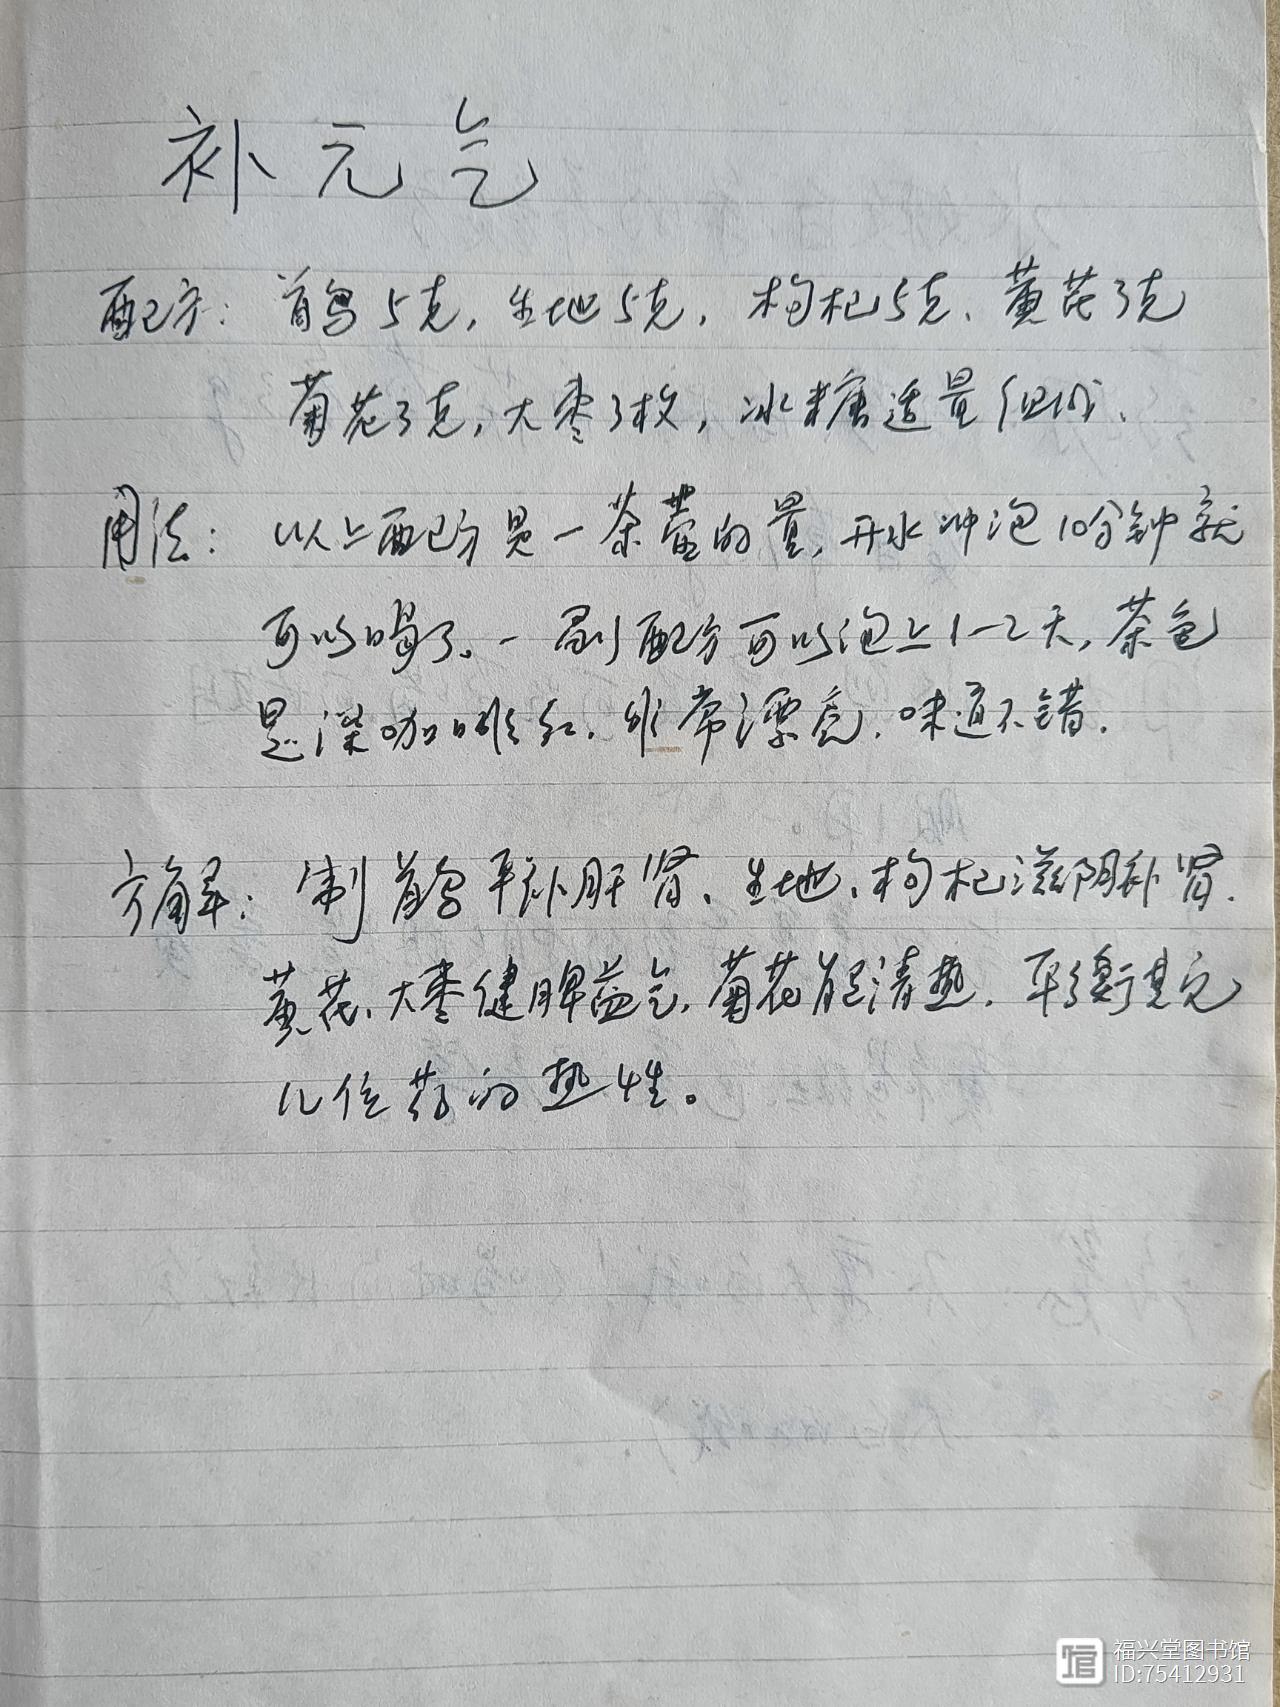 补元气
配方：首乌5克，生地5克，枸杞5克、黄芪3克
菊花3克，大枣3枚，冰糖适量组成.
用法：以上配方是一茶壶的量，开水冲泡10分钟就
可以喝了。一副配方可以泡上1-2天，茶色
是深咖啡红.非常漂亮.味道不错.
方解：制首乌平补肝肾、生地、枸杞滋阴补肾.
黄芪、大枣健脾益气，菊花能清热.平衡其它
几位药的热性。
福兴堂图书馆
ID:75412931